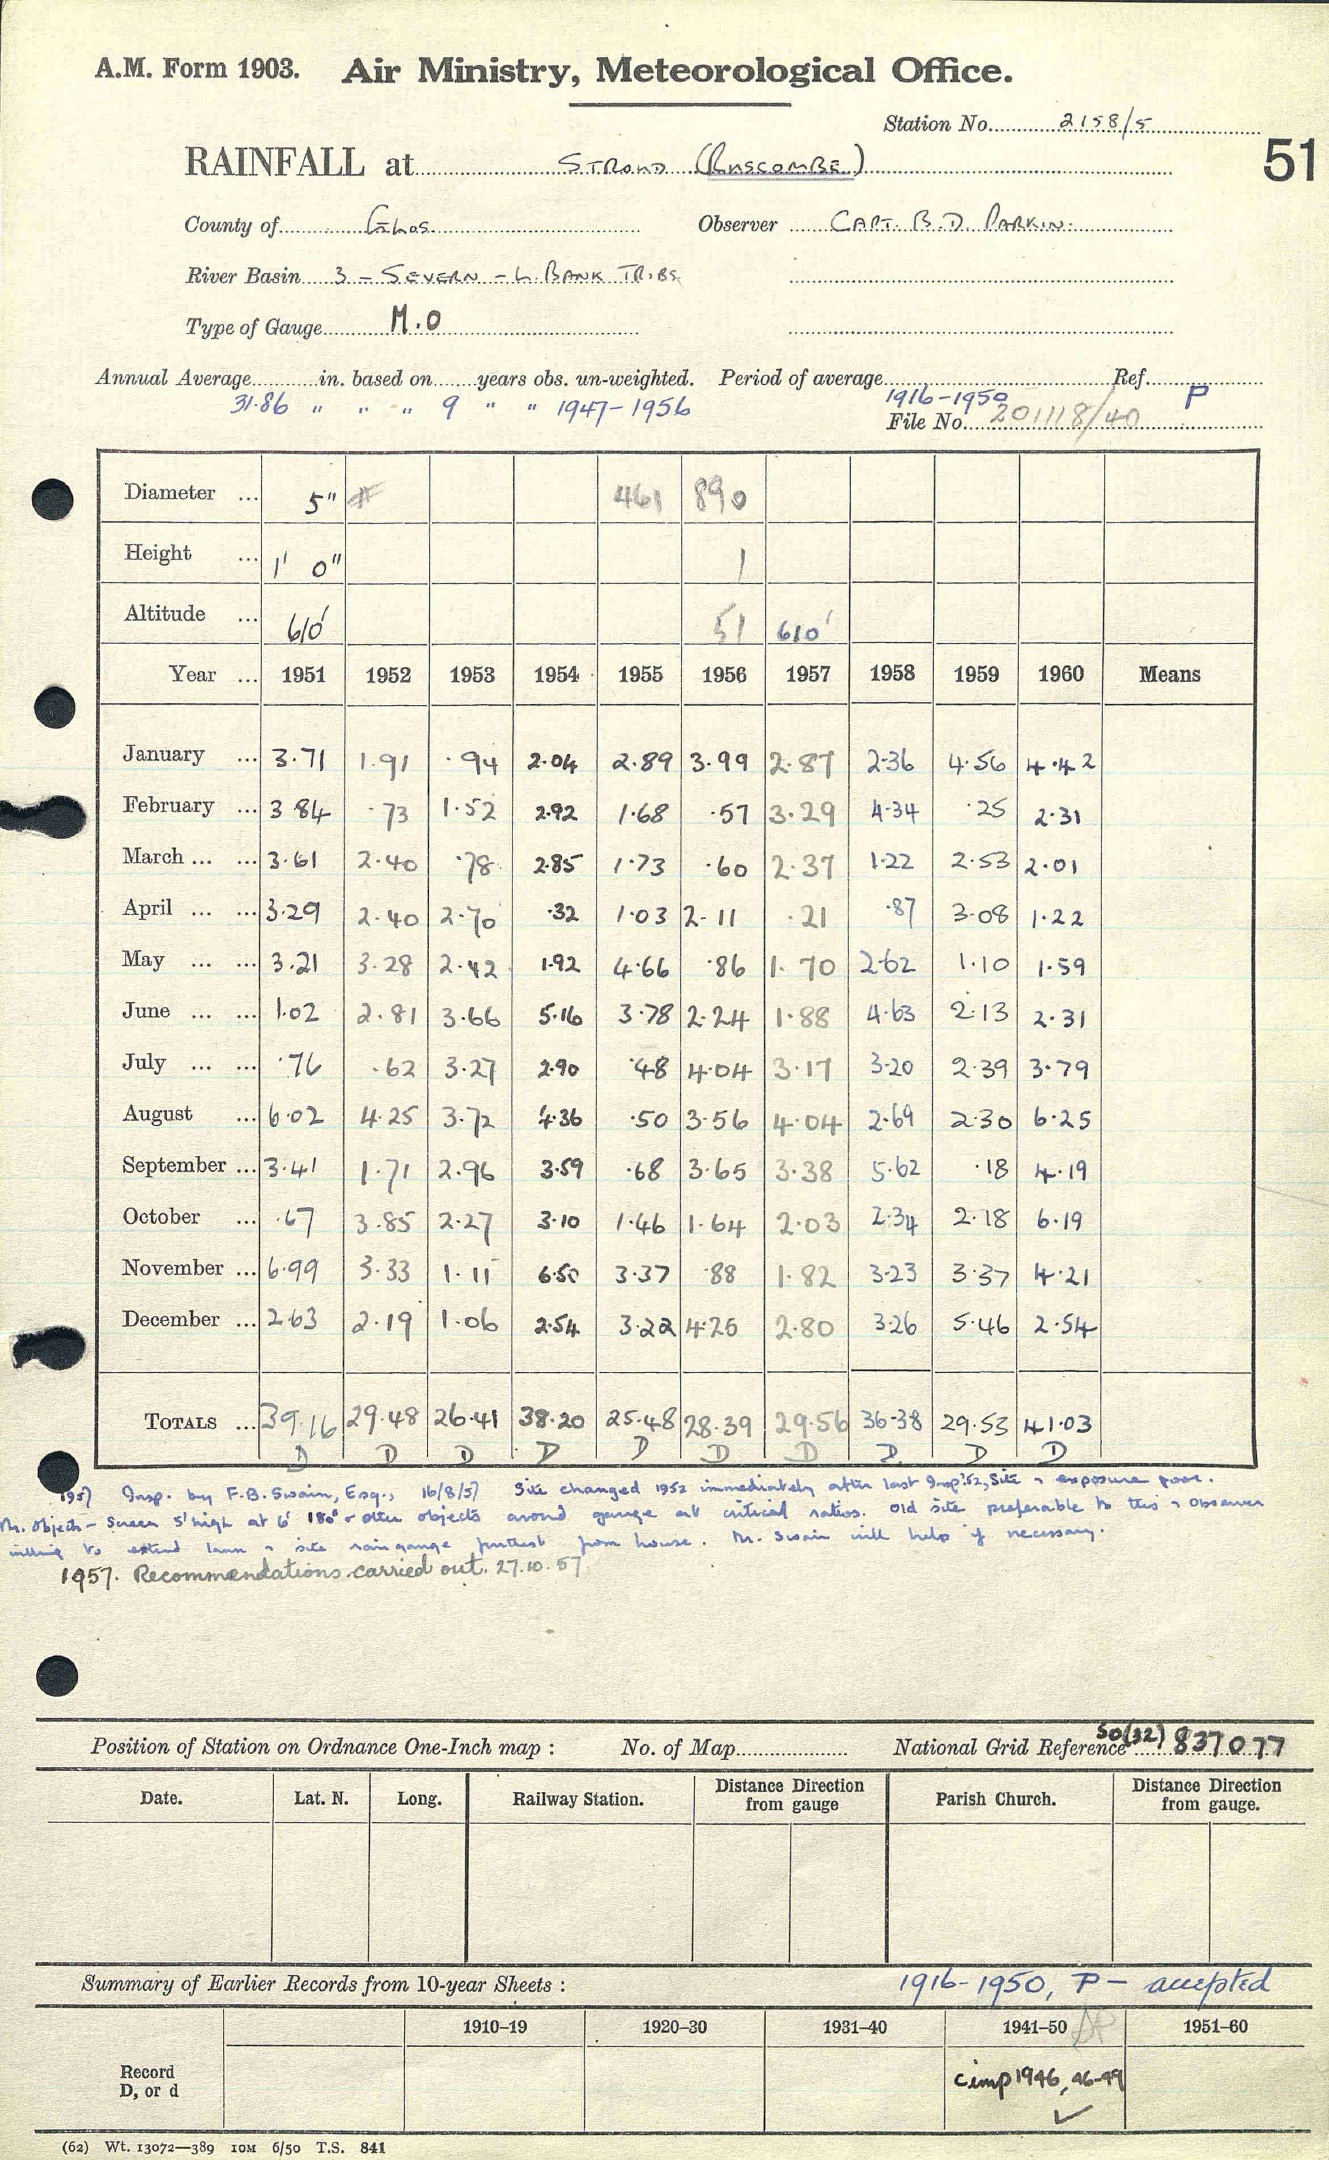 A.M. Form 1903. Air Ministry, Meteorological Office.
Station No. 2158/5
51
RAINFALL at STROUD (RUSCOMBE)
County of Glos. Observer CAPT. B.D. PARKIN.
River Basin 3 – SEVERN – L. BANK TRIBS
Type of Gauge M.O
Annual Average in. based on years obs. un-weighted. Period of average Ref.
31.86 " " " 9 " " 1947-1956 1916-1950 P
File No. 201118/40
Diameter ... 5" # 461 890
Height ... 1' 0" 1
Altitude ... 610' 51 610'
Year ... 1951 1952 1953 1954 1955 1956 1957 1958 1959 1960 Means
January ... 3.71 1.91 .94 2.04 2.89 3.99 2.87 2.36 4.56 4.42
February ... 3 84 .73 1.52 2.92 1.68 .57 3.29 4.34 .25 2.31
March ... ... 3.61 2.40 .78 2.85 1.73 .60 2.37 1.22 2.53 2.01
April ... ... 3.29 2.40 2.70 .32 1.03 2.11 .21 .87 3.08 1.22
May ... ... 3.21 3.28 2.42 1.92 4.66 .86 1.70 2.62 1.10 1.59
June ... ... 1.02 2.81 3.66 5.16 3.78 2.24 1.88 4.63 2.13 2.31
July ... ... .76 .62 3.27 2.90 .48 4.04 3.17 3.20 2.39 3.79
August ... 6.02 4.25 3.72 4.36 .50 3.56 4.04 2.69 2.30 6.25
September ... 3.41 1.71 2.96 3.59 .68 3.65 3.38 5.62 .18 4.19
October ... .67 3.85 2.27 3.10 1.46 1.64 2.03 2.34 2.18 6.19
November ... 6.99 3.33 1.11 6.50 3.37 .88 1.82 3.23 3.37 4.21
December ... 2.63 2.19 1.06 2.54 3.22 4.25 2.80 3.26 5.46 2.54
TOTALS ... 39.16 29.48 26.41 38.20 25.48 28.39 29.56 36.38 29.53 41.03
D D D D D D D D D D
1957 Insp. by F.B. Swain, Esq., 16/8/57 Site changed 1952 immediately after last Insp. '52, Site & exposure poor.
objects – Screen 5' high at 6' 180° & other objects around gauge at critical ratios. Old site preferable to this & Observer
willing to extend lawn & site raingauge furthest from house. Mr. Swain will help if necessary.
1957. Recommendations carried out. 27.10.57
Position of Station on Ordnance One-Inch map : No. of Map National Grid Reference SO(32) 837077
Date. Lat. N. Long. Railway Station. Distance Direction from gauge Parish Church. Distance Direction from gauge.
Summary of Earlier Records from 10-year Sheets : 1916-1950, P – accepted
1910–19 1920–30 1931–40 1941–50 1951–60
Record
D, or d
1946, 46-49 ✓
(62) Wt. 13072—389 10M 6/50 T.S. 841